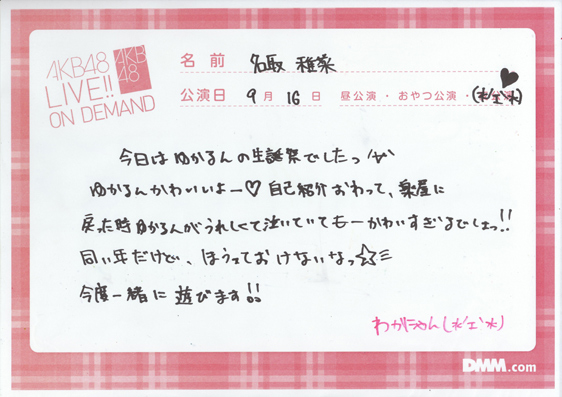 AKB48
LIVE!!
ON DEMAND
AKB
48
名前 名取 稚菜
公演日 9月16日 昼公演・おやつ公演・
今日はゆかるんの生誕祭でしたっ
ゆかるんかわいいよー♡ 自己紹介おわって、楽屋に
戻った時ゆかるんがうれしくて泣いていてもーかわいすぎるでしょっ!!
同い年だけど、ほうっておけないなっ☆彡
今度一緒に遊びます!!
わかにゃん(*´ェ`*)
DMM.com